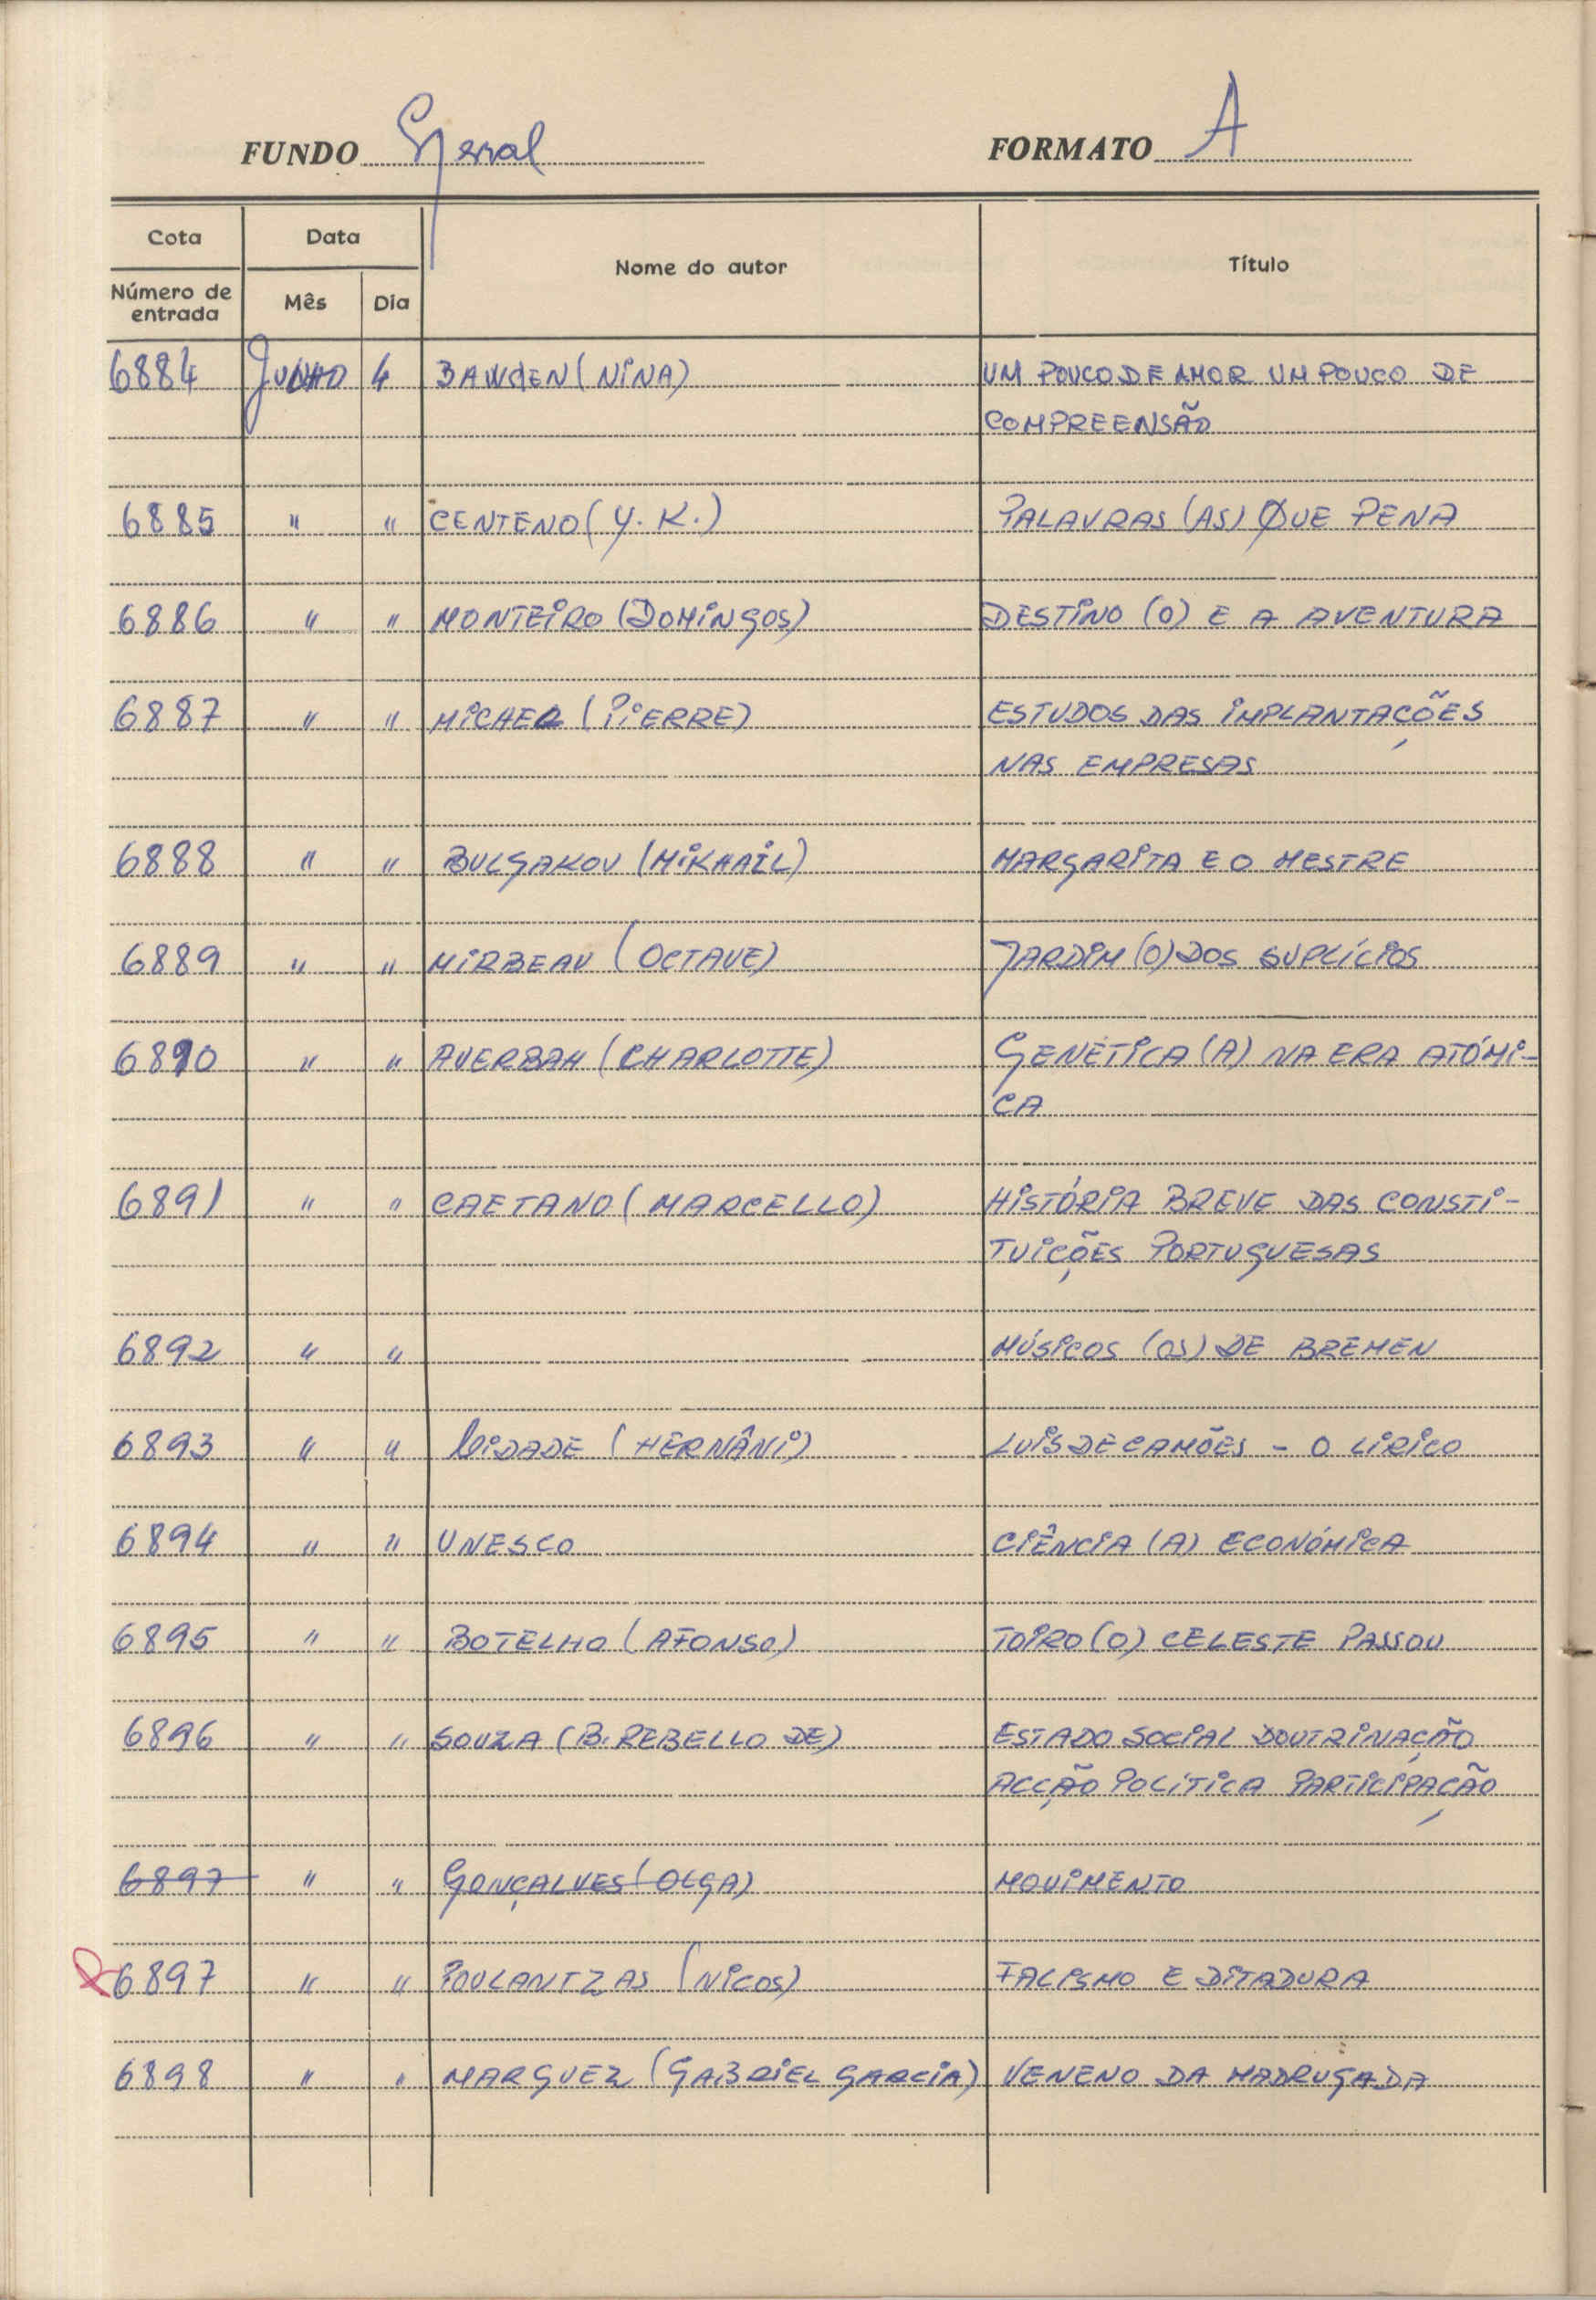 FUNDO Geral FORMATO A
Cota Data Nome do autor Título
Número de entrada Mês Dia
6884 Junho 4 BAWDEN (NINA) UM POUCO DE AMOR UM POUCO DE
COMPREENSÃO
6885 " " CENTENO (Y. K.) PALAVRAS (AS) QUE PENA
6886 " " MONTEIRO (DOMINGOS) DESTINO (O) E A AVENTURA
6887 " " MICHEL (PIERRE) ESTUDOS DAS IMPLANTAÇÕES
NAS EMPRESAS
6888 " " BULGAKOV (MIKHAIL) MARGARITA E O MESTRE
6889 " " MIRBEAU (OCTAVE) JARDIM (O) DOS SUPLÍCIOS
6890 " " AUERBAH (CHARLOTTE) GENÉTICA (A) NA ERA ATÓMI-
CA
6891 " " CAETANO (MARCELLO) HISTÓRIA BREVE DAS CONSTI-
TUIÇÕES PORTUGUESAS
6892 " " MÚSICOS (OS) DE BREMEN
6893 " " CIDADE (HERNÂNI) LUIS DE CAMÕES - O LIRICO
6894 " " UNESCO CIÊNCIA (A) ECONÓMICA
6895 " " BOTELHO (AFONSO) TOIRO (O) CELESTE PASSOU
6896 " " SOUZA (B. REBELLO DE) ESTADO SOCIAL DOUTRINAÇÃO
ACÇÃO POLÍTICA PARTICIPAÇÃO
6897 " " GONÇALVES (OLGA) MOVIMENTO
6897 " " POULANTZAS (NICOS) FACISMO E DITADURA
6898 " " MARGUEZ (GABRIEL GARCIA) VENENO DA MADRUGADA